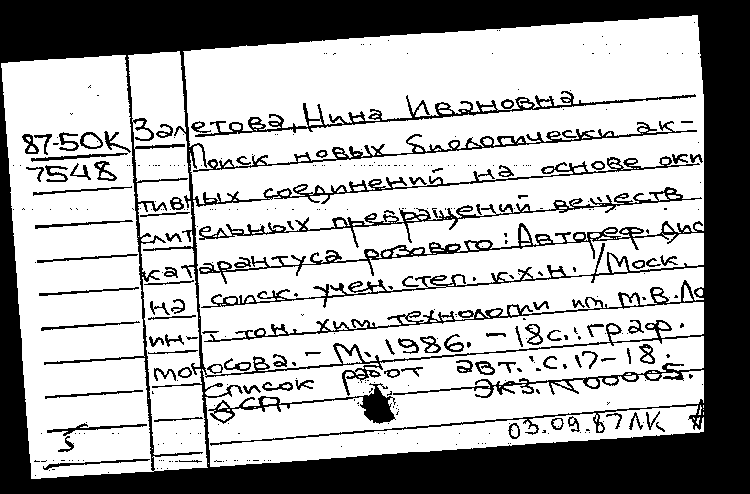 87-50К
7548
Залетова, Нина Ивановна.
Поиск новых биологически ак-
тивных соединений на основе оки
слительных превращений веществ
катарантуса розового: Автореф. дис
на соиск. учен. степ. к.х.н. / Моск.
ин-т тон. хим. технологии им. М.В.Ло
моносова. - М., 1986. - 18с.: граф.
Список работ авт.: с. 17-18.
ДСП. Экз. N 00005.
03.09.87 ЛК
5